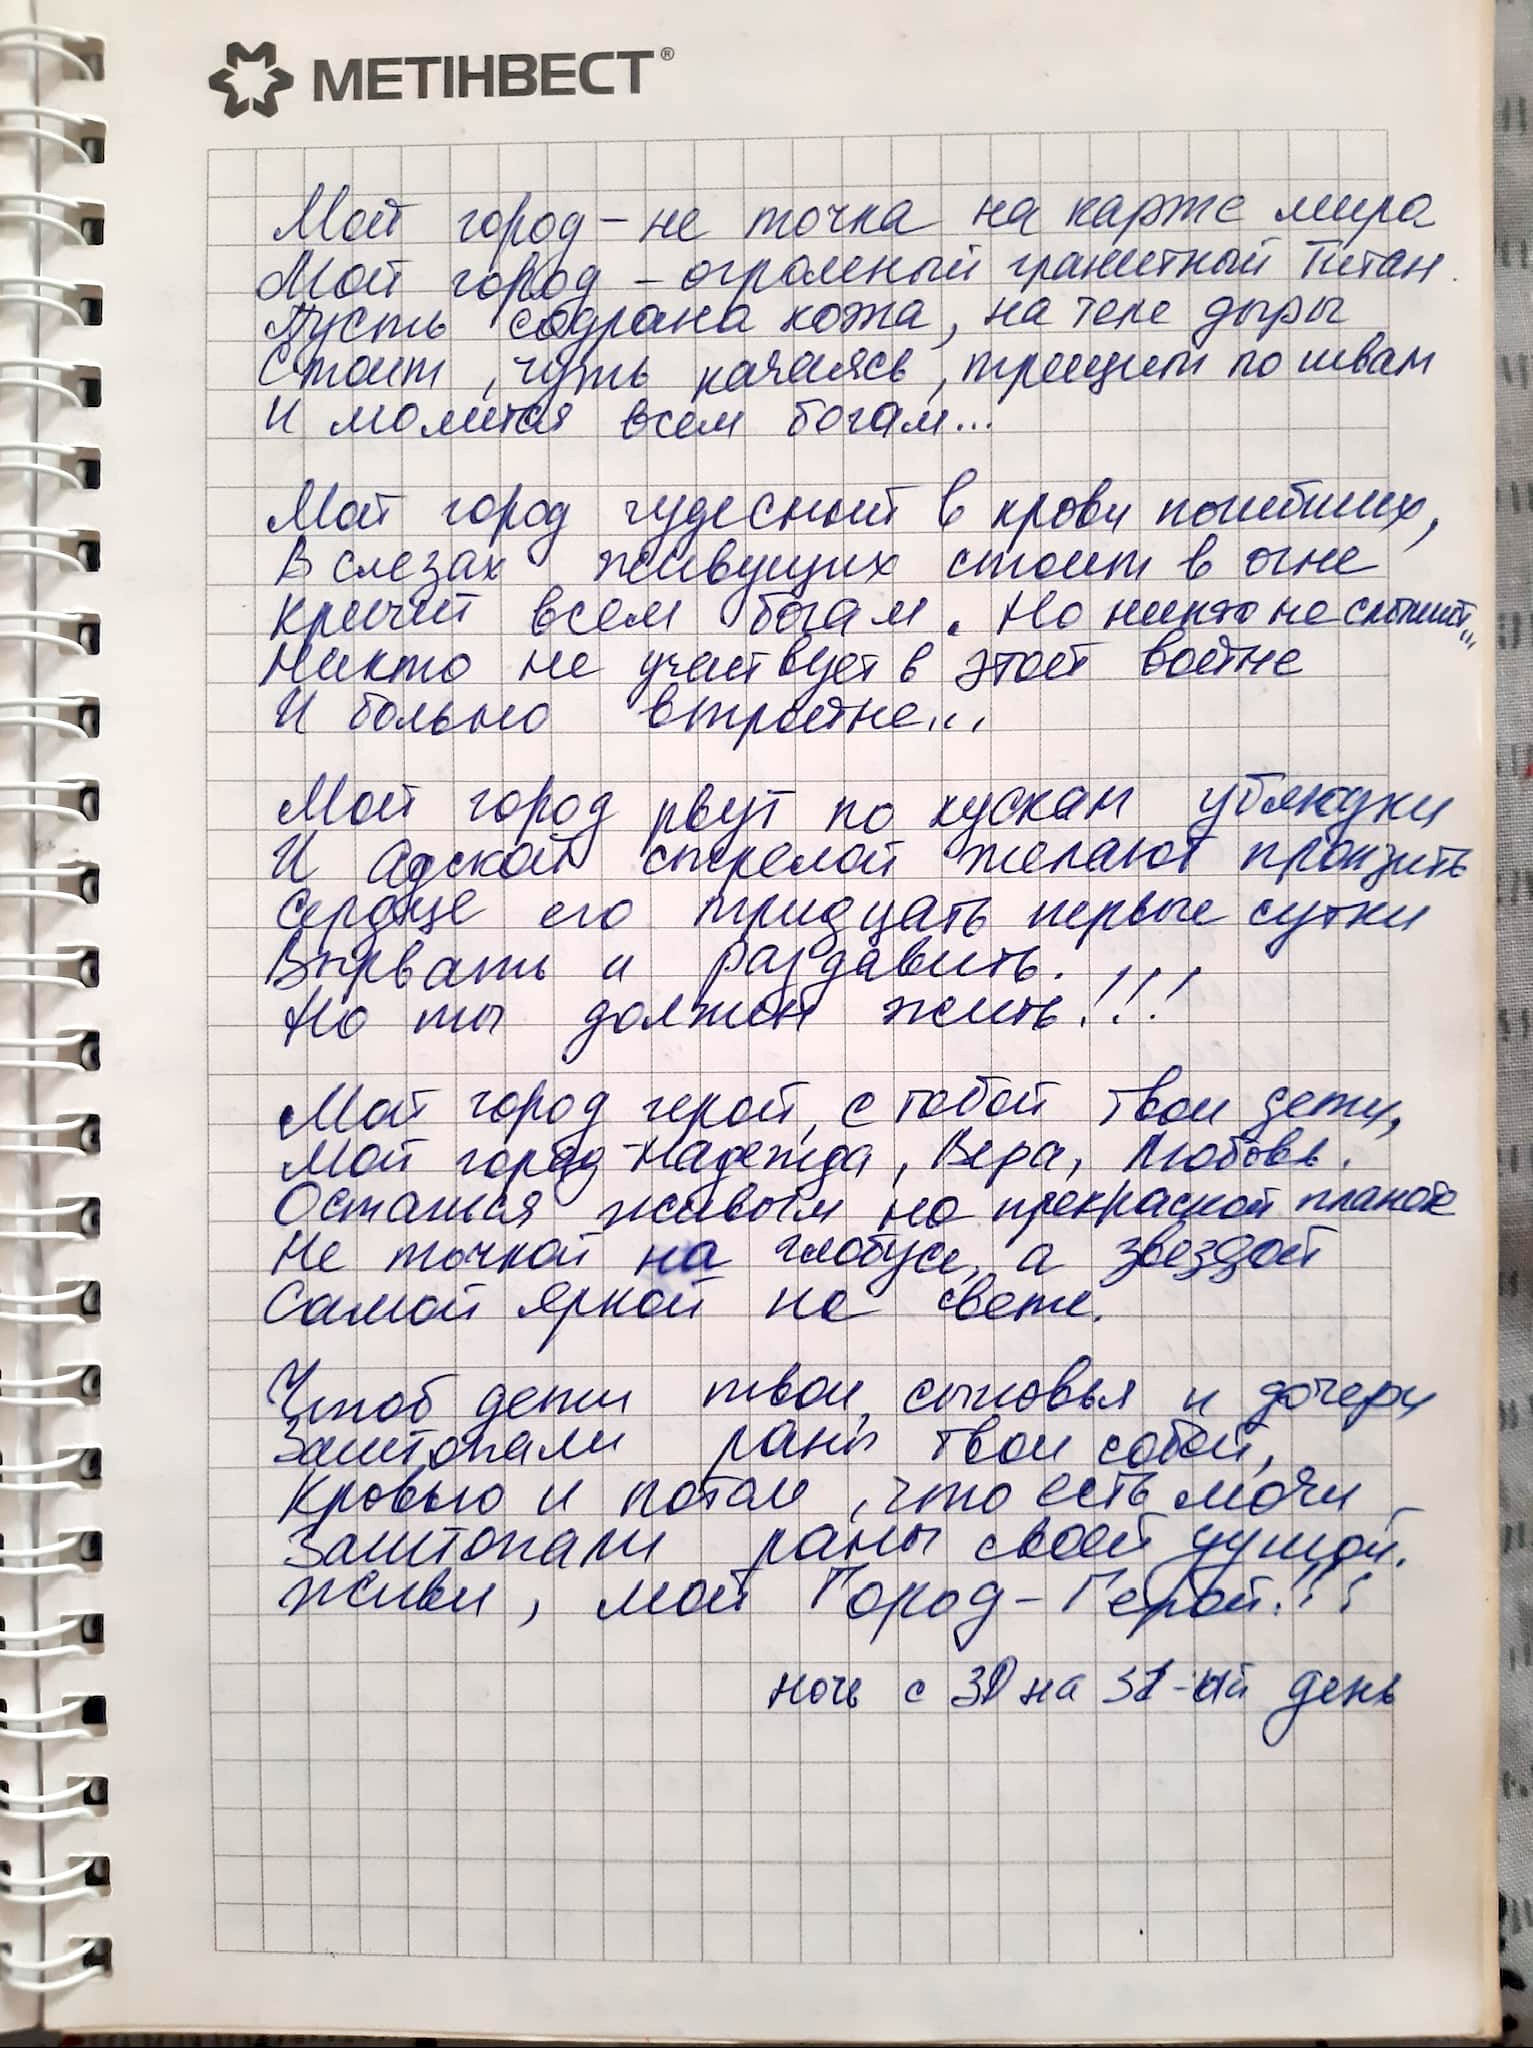 МЕТІНВЕСТ®
Мой город - не точка на карте мира
Мой город - огромный гранитный Титан.
Пусть содрана кожа, на теле дыры
Стоит, чуть качаясь, трещит по швам
И молится всем богам...
Мой город чудесный в крови погибших,
В слезах живущих стоит в огне
Кричит всем богам. Но никто не слышит...
Никто не участвует в этой войне
И больно втройне...
Мой город рвут по кускам ублюдки
И адской стрелой желают пронзить
Сердце его тридцать первые сутки
Вырвать и раздавить.
Но ты должен жить!!!
Мой город герой, с тобой твои дети,
Мой город - Надежда, Вера, Любовь.
Останься живым на прекрасной планете
Не точкой на глобусе, а звездой
Самой яркой на свете.
Чтоб дети твои, сыновья и дочери
Заштопали раны твои собой,
Кровью и потом, что есть мочи
Заштопали раны своей душой.
Живи, мой Город-Герой!!!
ночь с 30 на 31-ый день